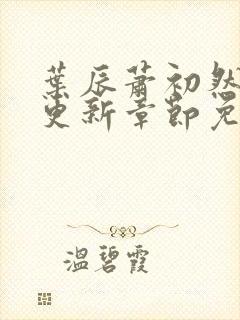 葉辰蕭初然
更新章節免
溫碧霞